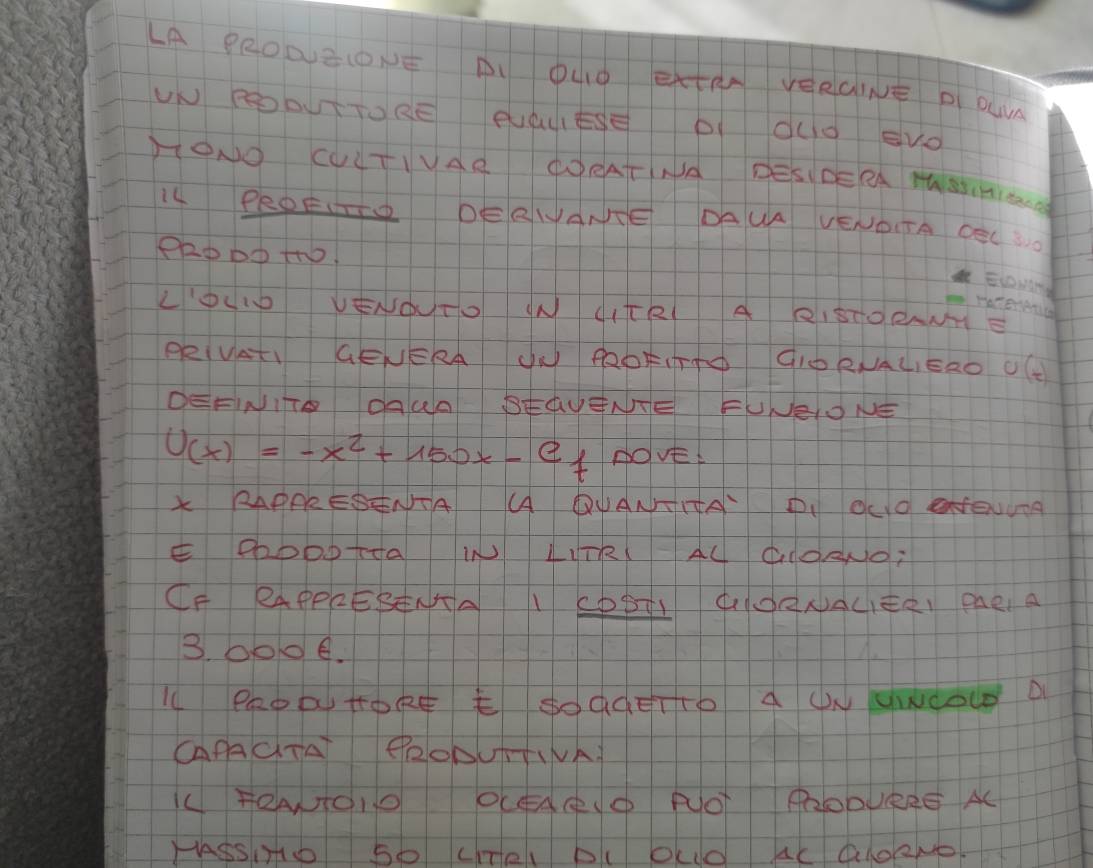 LA PRODUZIONE DI OLIO EXTRA VERGINE DI OLIVA
UN PRODUTTORE PUGLIESE DI OLIO EVO
MONO CULTIVAR CORATINA DESIDERA MASSIMIZZARE
IL PROFITTO DERIVANTE DALLA VENDITA DEL SUO
PRODOTTO.
ECONOMIA
MATEMATICA
L'OLIO VENDUTO IN LITRI A RISTORANTI E
PRIVATI GENERA UN PROFITTO GIORNALIERO U(x)
DEFINITO DALLA SEGUENTE FUNZIONE
U(x) = -x² + 150x - Cf DOVE:
x RAPPRESENTA LA QUANTITÀ DI OLIO OTTENUTA
E PRODOTTA IN LITRI AL GIORNO;
CF RAPPRESENTA I COSTI GIORNALIERI PARI A
3.000€.
IL PRODUTTORE È SOGGETTO A UN VINCOLO DI
CAPACITÀ PRODUTTIVA:
IL FRANTOIO OLEARIO PUÒ PRODURRE AL
MASSIMO 50 LITRI DI OLIO AL GIORNO.